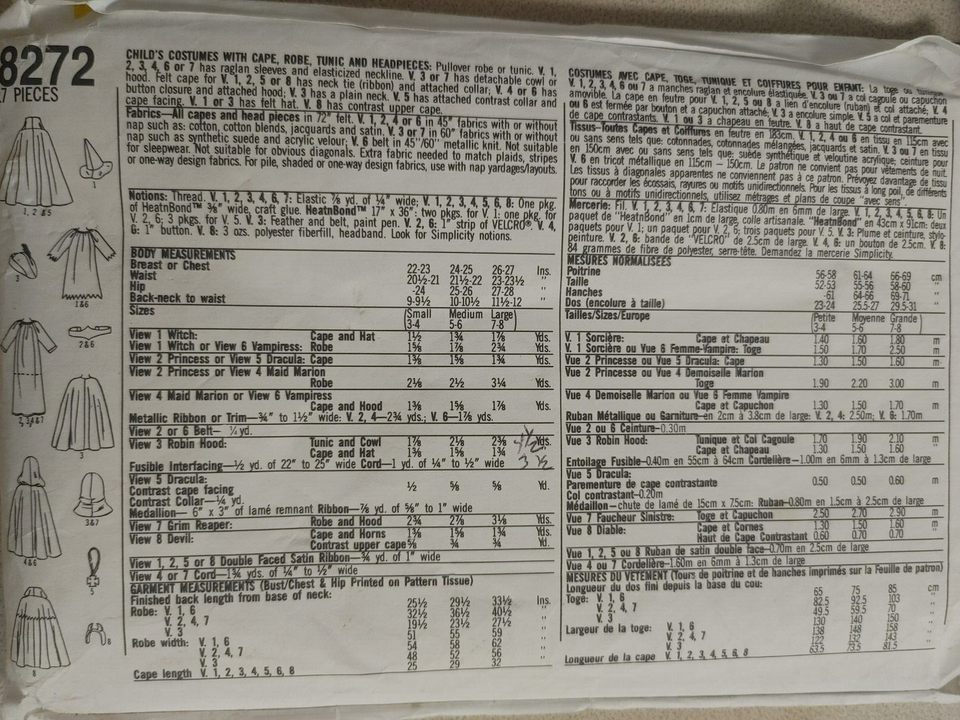 8272
7 PIECES
CHILD'S COSTUMES WITH CAPE, ROBE, TUNIC AND HEADPIECES: Pullover robe or tunic. V. 1,
2, 3, 4, 6 or 7 has raglan sleeves and elasticized neckline. V. 3 or 7 has detachable cowl or
hood. Felt cape for V. 1, 2, 5 or 8 has neck tie (ribbon) and attached collar; V. 4 or 6 has
button closure and attached hood; V. 3 has a plain neck. V. 5 has attached contrast collar and
cape facing. V. 1 or 3 has felt hat. V. 8 has contrast upper cape.
Fabrics—All capes and head pieces in 72" felt. V. 1, 2, 4 or 6 in 45" fabrics with or without
nap such as: cotton, cotton blends, jacquards and satin. V. 3 or 7 in 60" fabrics with or without
nap such as synthetic suede and acrylic velour; V. 6 belt in 45"/60" metallic knit. Not suitable
for sleepwear. Not suitable for obvious diagonals. Extra fabric needed to match plaids, stripes
or one-way design fabrics. For pile, shaded or one-way design fabrics, use with nap yardages/layouts.
Notions: Thread. V. 1, 2, 3, 4, 6, 7: Elastic ⅞ yd. of ¼" wide; V. 1, 2, 3, 4, 5, 6, 8: One pkg.
of HeatnBond™ ⅜" wide, craft glue. HeatnBond™ 17" x 36": two pkgs. for V. 1; one pkg. for
V. 2, 6; 3 pkgs. for V. 5. V. 3: Feather and belt, paint pen. V. 2, 6: 1" strip of VELCRO®. V. 4,
6: 1" button. V. 8: 3 ozs. polyester fiberfill, headband. Look for Simplicity notions.
BODY MEASUREMENTS
Breast or Chest 22-23 24-25 26-27 Ins.
Waist 20½-21 21½-22 23-23½ "
Hip -24 25-26 27-28 "
Back-neck to waist 9-9½ 10-10½ 11½-12 "
Sizes (Small Medium Large)
3-4 5-6 7-8
View 1 Witch: Cape and Hat 1½ 1¾ 1⅞ Yds.
View 1 Witch or View 6 Vampiress: Robe 1⅝ 1⅞ 2¾ Yds.
View 2 Princess or View 5 Dracula: Cape 1⅜ 1⅝ 1¾ Yds.
View 2 Princess or View 4 Maid Marion
Robe 2⅛ 2½ 3¼ Yds.
View 4 Maid Marion or View 6 Vampiress
Cape and Hood 1⅜ 1⅝ 1⅞ Yds.
Metallic Ribbon or Trim—¾" to 1½" wide: V. 2, 4—2¾ yds.; V. 6—1⅞ yds.
View 2 or 6 Belt—⅓ yd.
View 3 Robin Hood: Tunic and Cowl 1⅞ 2⅛ 2⅜ Yds.
Cape and Hat 1⅜ 1⅝ 1¾ Yds.
3 ½
Fusible Interfacing—½ yd. of 22" to 25" wide Cord—1 yd. of ¼" to ½" wide
View 5 Dracula:
Contrast cape facing ½ ⅝ ⅝ Yd.
Contrast Collar—¼ yd.
Medallion— 6" x 3" of lamé remnant Ribbon—⅞ yd. of ⅝" to 1" wide
View 7 Grim Reaper: Robe and Hood 2¾ 2⅞ 3⅛ Yds.
View 8 Devil: Cape and Horns 1⅜ 1⅝ 1¾ Yds.
Contrast upper cape ⅝ ¾ ¾ Yd.
View 1, 2, 5 or 8 Double Faced Satin Ribbon—¾ yd. of 1" wide
View 4 or 7 Cord—1¾ yds. of ¼" to ½" wide
GARMENT MEASUREMENTS (Bust/Chest & Hip Printed on Pattern Tissue)
Finished back length from base of neck:
Robe: V. 1, 6 25½ 29½ 33½ Ins.
V. 2, 4, 7 32½ 36½ 40½ "
V. 3 19½ 23½ 27½ "
Robe width: V. 1, 6 51 55 59 "
V. 2, 4, 7 54 58 62 "
V. 3 48 52 56 "
Cape length V. 1, 2, 3, 4, 5, 6, 8 25 29 32 "
COSTUMES AVEC CAPE, TOGE, TUNIQUE ET COIFFURES POUR ENFANT: La toge ou
V. 1, 2, 3, 4, 6 ou 7 a manches raglan et encolure élastiquée. V. 3 ou 7 a col cagoule ou capuchon
amovible. La cape en feutre pour V. 1, 2, 5 ou 8 a lien d'encolure (ruban) et col attaché; V. 4
ou 6 est fermée par bouton et a capuchon attaché; V. 3 a encolure simple. V. 5 a col et parementure
de cape contrastants. V. 1 ou 3 a chapeau en feutre. V. 8 a haut de cape contrastant.
Tissus—Toutes Capes et Coiffures en feutre en 183cm. V. 1, 2, 4 ou 6 en tissu en 115cm avec
ou sans sens tels que: cotonnades, cotonnades mélangées, jacquards et satin. V. 3 ou 7 en tissu
en 150cm avec ou sans sens tels que: suède synthétique et veloutine acrylique; ceinture pour
V. 6 en tricot métallique en 115cm — 150cm. Le patron ne convient pas pour vêtements de nuit.
Les tissus à diagonales apparentes ne conviennent pas à ce patron. Prévoyez davantage de tissu
pour raccorder les écossais, rayures ou motifs unidirectionnels. Pour les tissus à long poil, de différents
tons ou à motifs unidirectionnels, utilisez métrages et plans de coupe "avec sens".
Mercerie: Fil. V. 1, 2, 3, 4, 6, 7: Elastique 0.80m en 6mm de large. V. 1, 2, 3, 4, 5, 6, 8: Un
paquet de "HeatnBond" en 1cm de large, colle artisanale. "HeatnBond" en 43cm x 91cm: deux
paquets pour V. 1; un paquet pour V. 2, 6; trois paquets pour V. 5. V. 3: Plume et ceinture, stylo-
peinture. V. 2, 6: bande de "VELCRO" de 2.5cm de large. V. 4, 6: un bouton de 2.5cm. V. 8:
84 grammes de fibre de polyester, serre-tête. Demandez la mercerie Simplicity.
MESURES NORMALISEES
Poitrine 56-58 61-64 66-69 cm
Taille 52-53 55-56 58-60 "
Hanches -61 64-66 69-71 "
Dos (encolure à taille) 23-24 25.5-27 29.5-31 "
Tailles/Sizes/Europe (Petite Moyenne Grande)
3-4 5-6 7-8
V. 1 Sorcière: Cape et Chapeau 1.40 1.60 1.80 m
V. 1 Sorcière ou Vue 6 Femme-Vampire: Toge 1.50 1.70 2.50 m
Vue 2 Princesse ou Vue 5 Dracula: Cape 1.30 1.50 1.60 m
Vue 2 Princesse ou Vue 4 Demoiselle Marion
Toge 1.90 2.20 3.00 m
Vue 4 Demoiselle Marion ou Vue 6 Femme Vampire
Cape et Capuchon 1.30 1.50 1.70 m
Ruban Métallique ou Garniture—en 2cm à 3.8cm de large: V. 2, 4: 2.50m; V. 6: 1.70m
Vue 2 ou 6 Ceinture—0.30m
Vue 3 Robin Hood: Tunique et Col Cagoule 1.70 1.90 2.10 m
Cape et Chapeau 1.30 1.50 1.60 m
Entoilage Fusible—0.40m en 55cm à 64cm Cordelière—1.00m en 6mm à 1.3cm de large
Vue 5 Dracula:
Parementure de cape contrastante 0.50 0.50 0.60 m
Col contrastant—0.20m
Médaillon—chute de lamé de 15cm x 7.5cm: Ruban—0.80m en 1.5cm à 2.5cm de large
Vue 7 Faucheur Sinistre: Toge et Capuchon 2.50 2.70 2.90 m
Vue 8 Diable: Cape et Cornes 1.30 1.50 1.60 m
Haut de Cape Contrastant 0.60 0.70 0.70 m
Vue 1, 2, 5 ou 8 Ruban de satin double face—0.70m en 2.5cm de large
Vue 4 ou 7 Cordelière—1.60m en 6mm à 1.3cm de large
MESURES DU VETEMENT (Tours de poitrine et de hanches imprimés sur la Feuille de patron)
Longueur du dos fini depuis la base du cou:
Toge: V. 1, 6 65 75 85 cm
V. 2, 4, 7 82.5 92.5 103 "
V. 3 49.5 59.5 70 "
Largeur de la toge: V. 1, 6 130 140 150 "
V. 2, 4, 7 138 148 158 "
V. 3 122 132 143 "
Longueur de la cape V. 1, 2, 3, 4, 5, 6, 8 63.5 73.5 81.5 "
1, 2, & 5
1
3
1 & 6
2 & 6
2, 3, 4 & 7
3
3 & 7
4 & 6
5
8
8